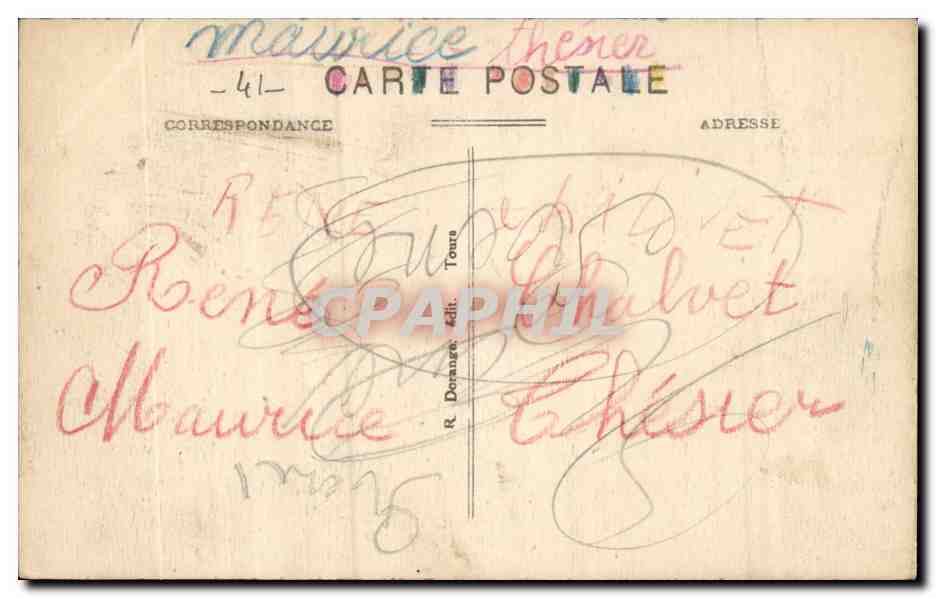 Maurice Thésier
-41-
CARTE POSTALE
CORRESPONDANCE
ADRESSE
RENE
René Chalvet
CPAPHIL
Maurice Thésier
R. Dorange, édit. Tours